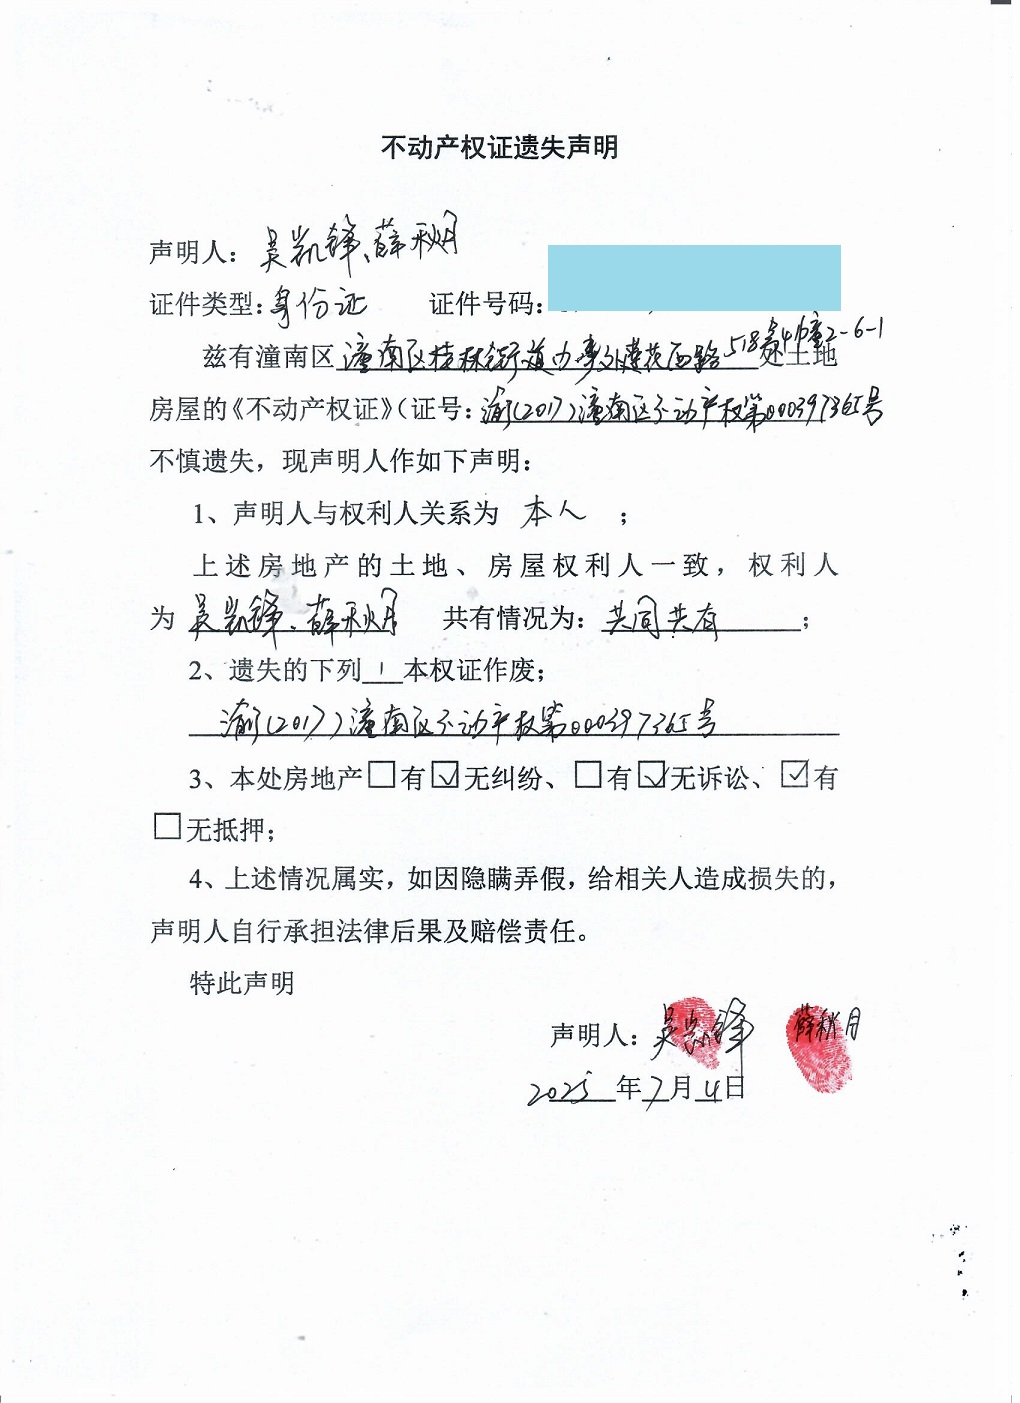 不动产权证遗失声明
声明人：吴凯锋、薛秋月
证件类型：身份证 证件号码：
兹有潼南区潼南区桂林街道办事处建花西路518号4幢2-6-1处土地
房屋的《不动产权证》（证号：渝（2017）潼南区不动产权第000397365号
不慎遗失，现声明人作如下声明：
1、声明人与权利人关系为 本人 ；
上述房地产的土地、房屋权利人一致，权利人
为 吴凯锋、薛秋月 共有情况为：共同共有；
2、遗失的下列 1 本权证作废；
渝（2017）潼南区不动产权第000397365号
3、本处房地产□有☑无纠纷、□有☑无诉讼、☑有
□无抵押；
4、上述情况属实，如因隐瞒弄假，给相关人造成损失的，
声明人自行承担法律后果及赔偿责任。
特此声明
声明人：吴凯锋 薛秋月
2025年7月4日